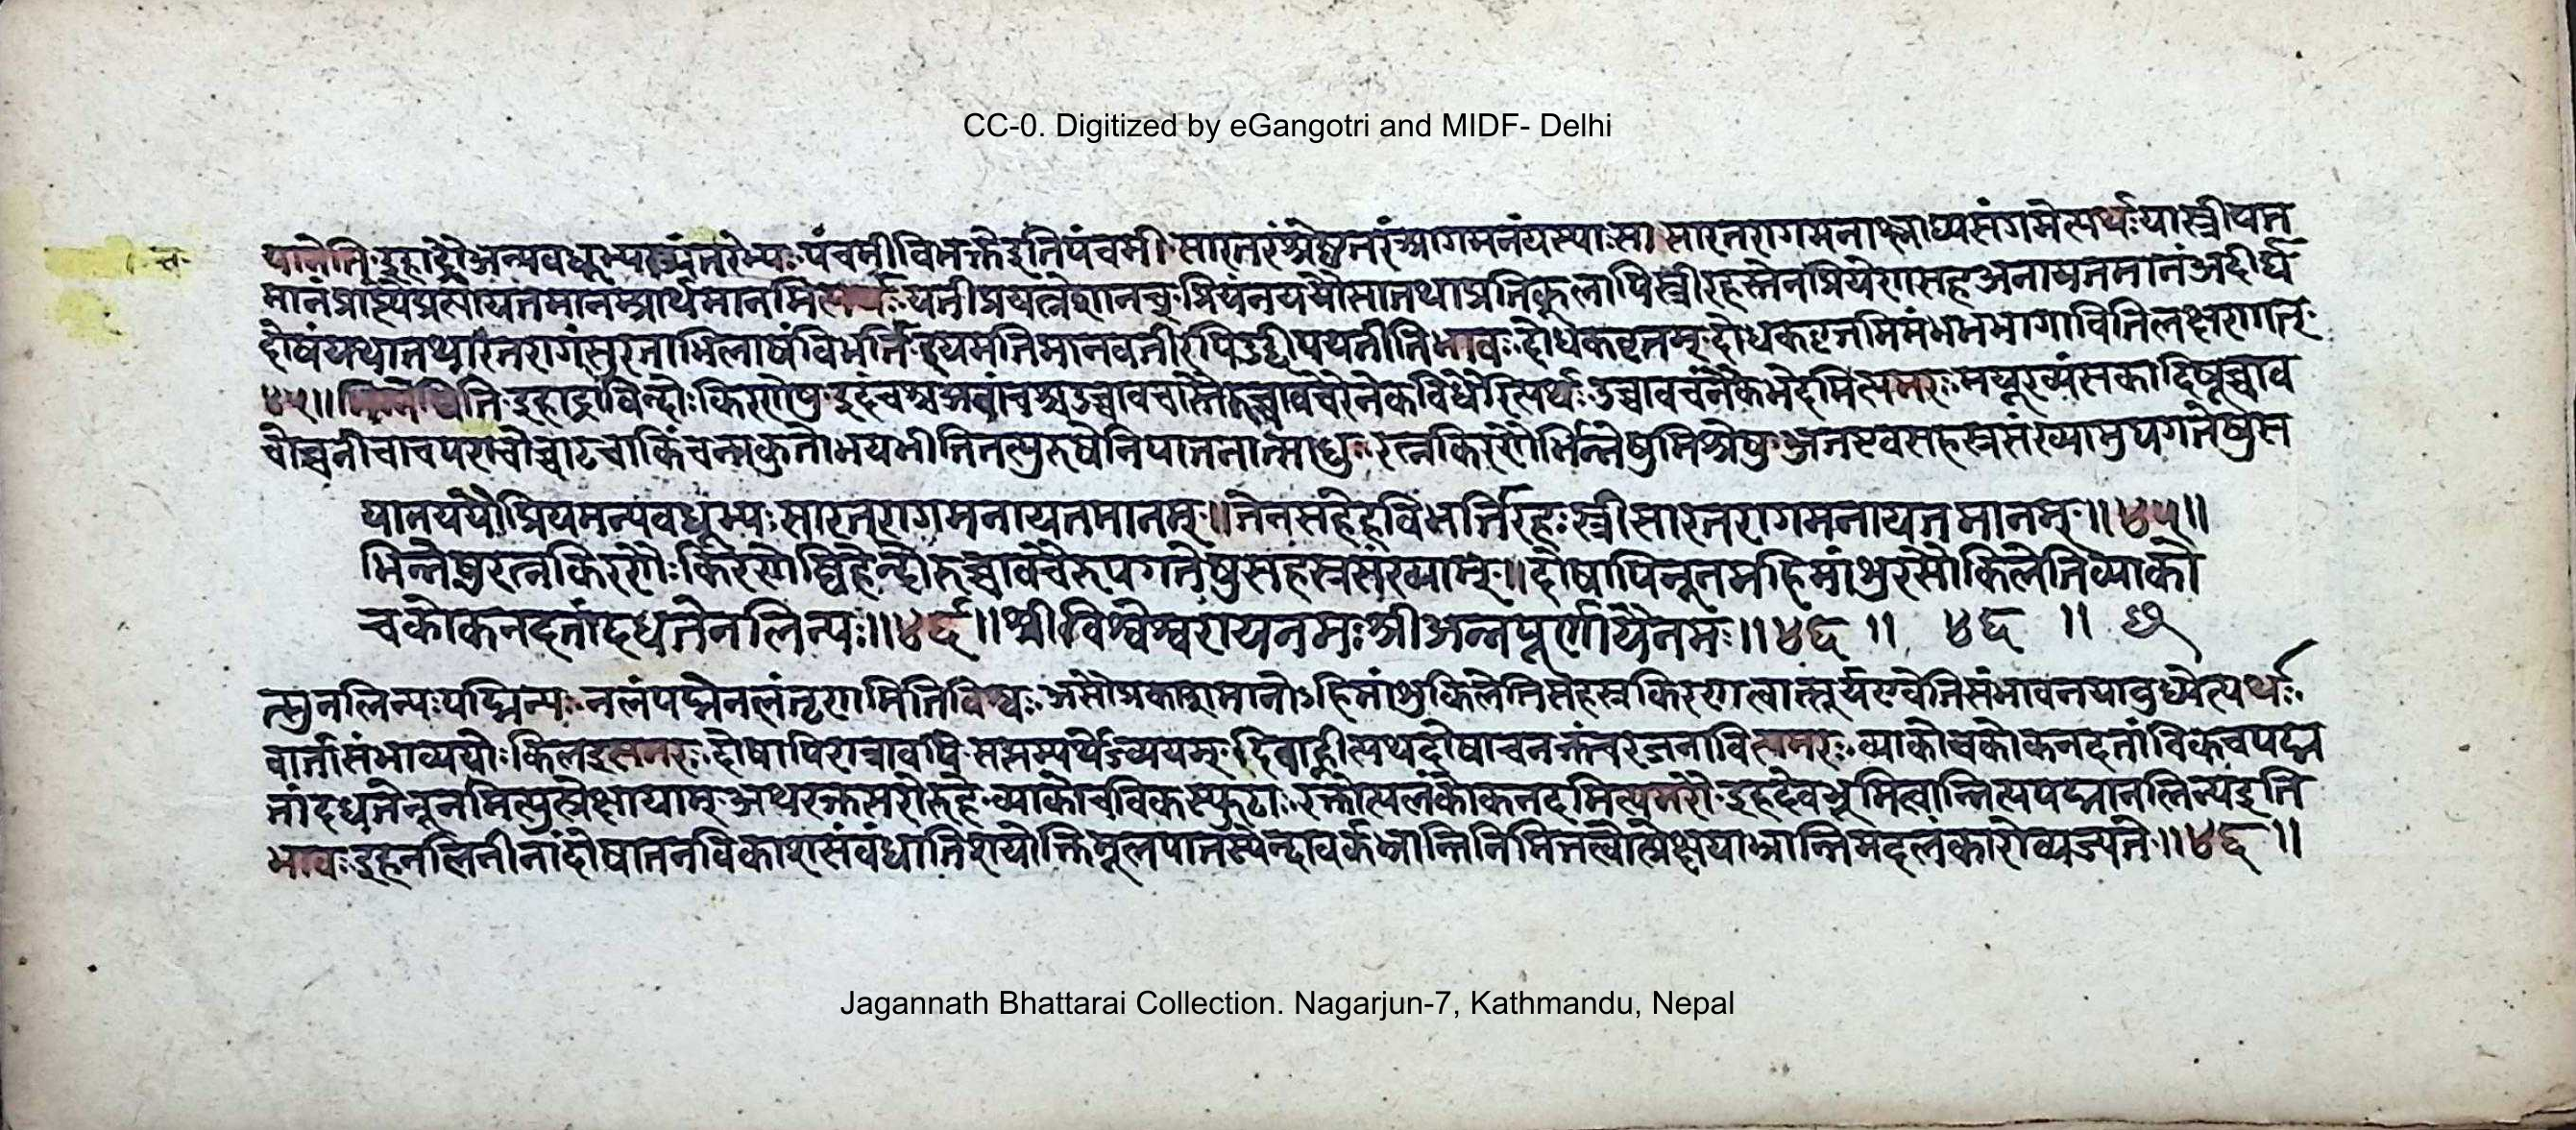 CC-0. Digitized by eGangotri and MIDF- Delhi
यानेति इहाद्रौ अन्यवधूभ्य पंचमीविभक्तेइतिपंचमी सारतरंश्रेष्ठतरंआगमनंयस्याःसा सारतरागमनाश्लाघ्यसंगमेत्यर्थःयास्त्रीयत
मानं प्रार्थमानमित्यर्थः यतीप्रयत्नेशानच् प्रियंनययौसातथाप्रतिकूलापिस्त्रीरहस्तेनप्रियेणसहअनायतमानंअदीर्घ
यथातथारतरागंसुरताभिलाषंविभर्ति इयमतिमानवतीरपिउद्दीपयतीतिभावः दोधकवृत्तम् दोधकवृत्तमिमंभभभागावितिलक्षणात्
४५॥ इहाद्राविन्दोःकिरणेषु उच्चावचास्तैरुच्चावचैरनेकविधैरित्यर्थः उच्चावचंनैकभेदमित्यमरः मयूरव्यंसकादिषूच्चाव
निपातनात्साधुः रत्नकिरणैर्भिन्नेषुमिश्रेषु अतएवसहस्रसंख्यामुपगतेषुस
यानययौप्रियमन्यवधूभ्यःसारतरागमनायतमानम्॥तेनसहेहविभर्तिरहःस्त्रीसारतरागमनायतमानम्॥४५॥
भिन्नेषुरत्नकिरणैःकिरणेष्विहेन्दोरुच्चावचैरुपगतेषुसहस्रसंख्याम्॥दोषापिनूनमहिमांशुरसौकिलेतिव्याको
चकोकनदतांदधतेनलिन्यः॥४६॥श्रीविश्वेश्वरायनमःश्रीअन्नपूर्णायैनमः॥४६॥ ४६ ॥
त्सुनलिन्यःपद्मिन्यः नलंपद्मेनलंतृणमितिविश्वः असौप्रकाशमानोऽहिमांशुकिलेतिसहस्रकिरणत्वात्सूर्यएवेतिसंभावनयाबुध्येत्यर्थः
वार्तासंभाव्ययोःकिलइत्यमरः दोषापिरात्रावपि सप्तम्यर्थेऽव्ययम् दिवाह्नीत्यथदोषाचनक्तंचरजनावित्यमरः व्याकोचकोकनदतांविकचपद्म
तांदधतेनूनमित्युत्प्रेक्षायाम् अथरक्तसरोरुहे व्याकोचविकचस्फुटाः रक्तोत्पलंकोकनदमित्यमरो इहदेवभूमित्वान्नित्यपद्मानलिन्यइति
भावः इहनलिनीनांदोषातनविकाशसंबंधातिशयोक्तिमूलयानस्येन्दावर्कभ्रान्तिनिमित्तत्वोत्प्रेक्षयाभ्रान्तिमदलंकारोव्यज्यते॥४६॥
Jagannath Bhattarai Collection. Nagarjun-7, Kathmandu, Nepal